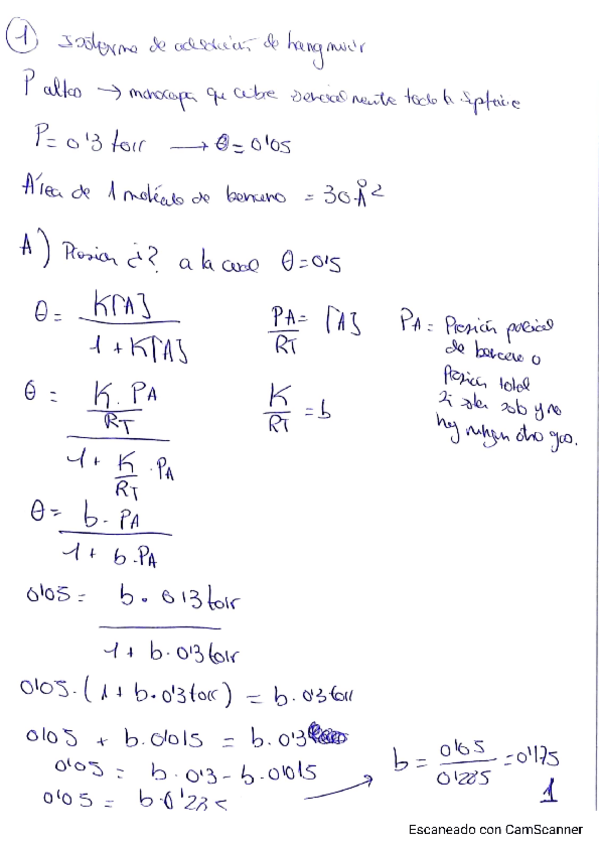 1 Isoterma de adsorción de Langmuir
P altas → monocapa que cubre parcialmente toda la superficie
P = 0'3 torr → θ = 0'05
Área de 1 molécula de benceno = 30 Å²
A) Presión ¿? a la cual θ = 0'5
θ = K[A] / 1 + K[A]
PA / RT = [A]
PA = Presión parcial
de benceno o
Presión total
si solo y no
hay ningún otro gas.
θ = K/RT · PA / 1 + K/RT · PA
K / RT = b
θ = b · PA / 1 + b · PA
0'05 = b · 0'3 torr / 1 + b · 0'3 torr
0'05 · (1 + b · 0'3 torr) = b · 0'3 torr
0'05 + b · 0'015 = b · 0'3
0'05 = b · 0'3 - b · 0'015
0'05 = b · 0'285
b = 0'05 / 0'285 = 0'175
1
Escaneado con CamScanner